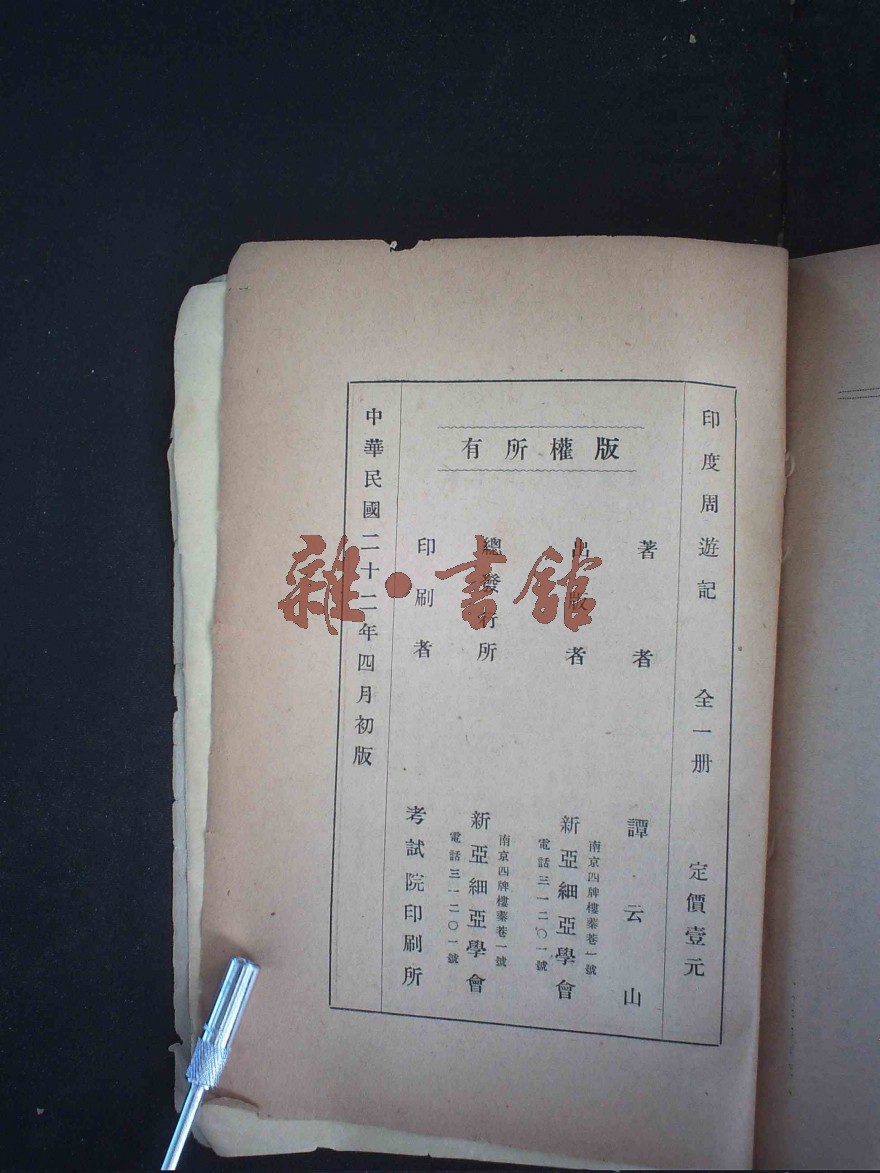 印度周遊記 全一册 定價壹元
版權所有
著者 譚云山
出版者 新亞細亞學會
南京四牌樓蓁巷一號
電話三一二〇一號
總發行所 新亞細亞學會
南京四牌樓蓁巷一號
電話三一二〇一號
印刷者 考試院印刷所
中華民國二十二年四月初版
雜·書館